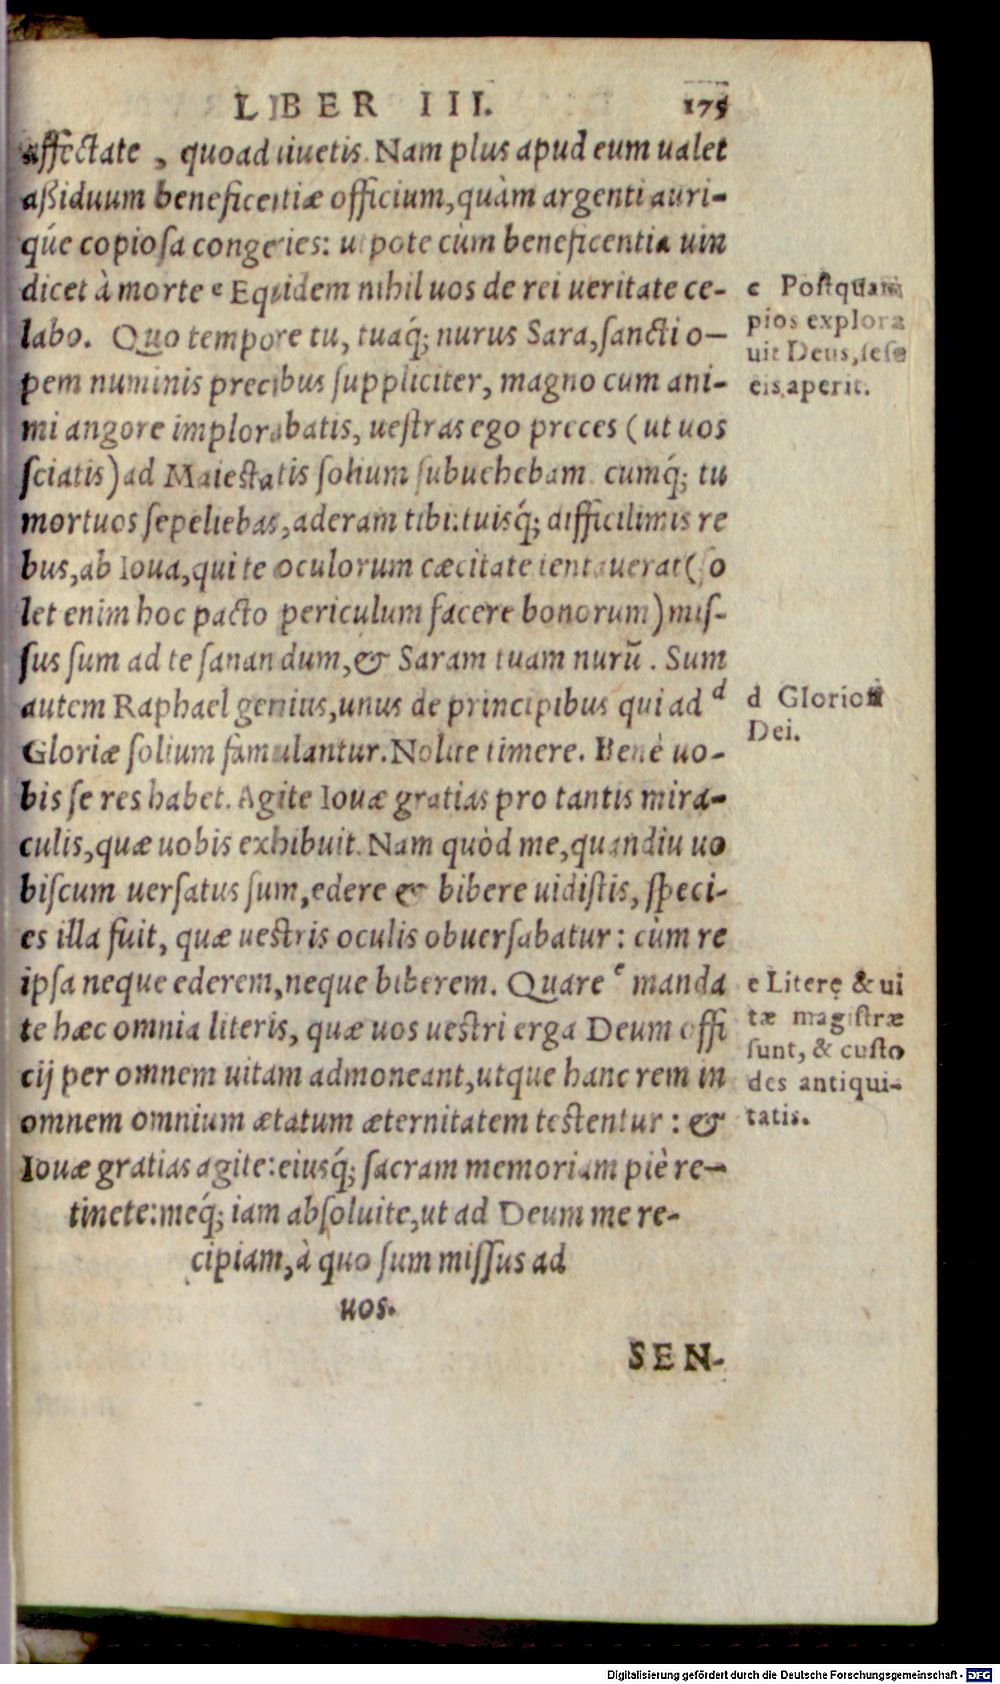 LIBER III. 175
affectate, quoad uiuetis. Nam plus apud eum ualet
aßiduum beneficentiæ officium, quàm argenti auri-
q́ue copiosa congeries: utpote cùm beneficentia uin
dicet à morte c Equidem nihil uos de rei ueritate ce-
labo. Quo tempore tu, tuaq́; nurus Sara, sancti o-
pem numinis precibus suppliciter, magno cum ani-
mi angore implorabatis, uestras ego preces (ut uos
sciatis) ad Maiestatis solium subuehebam. cumq́; tu
mortuos sepeliebas, aderam tibi: tuisq́; difficilimis re
bus, ab Ioua, qui te oculorum cæcitate tentauerat (so
let enim hoc pacto periculum facere bonorum) mis-
sus sum ad te sanandum, & Saram tuam nurũ. Sum
autem Raphael genius, unus de principibus qui ad d
Gloriæ solium famulantur. Nolite timere. Benè uo-
bis se res habet. Agite Iouæ gratias pro tantis mira-
culis, quæ uobis exhibuit. Nam quòd me, quandiu uo
biscum uersatus sum, edere & bibere uidistis, speci-
es illa fuit, quæ uestris oculis obuersabatur: cùm re
ipsa neque ederem, neque biberem. Quare e manda
te hæc omnia literis, quæ uos uestri erga Deum offi
cij per omnem uitam admoneant, utque hanc rem in
omnem omnium ætatum æternitatem testentur: &
Iouæ gratias agite: eiusq́; sacram memoriam piè re-
tinete: meq́; iam absoluite, ut ad Deum me re-
cipiam, à quo sum missus ad
uos.
SEN-
c Postquam
pios explora
uit Deus, sese
eis aperit.
d Gloriosi
Dei.
e Literę & ui
tæ magistræ
sunt, & custo
des antiqui-
tatis.
Digitalisierung gefördert durch die Deutsche Forschungsgemeinschaft - DFG